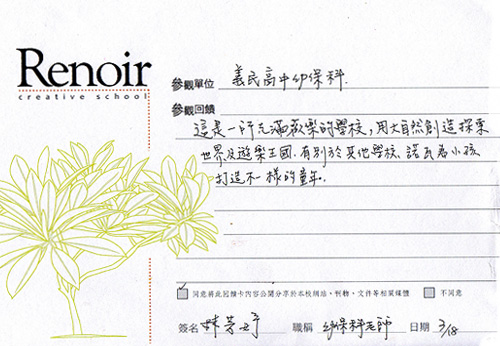 Renoir
creative school
參觀單位 義民高中幼保科.
參觀回饋
這是一所充滿歡樂的學校,用大自然創造探索
世界及遊樂王國.有別於其他學校.諾瓦為小孩
打造不一樣的童年.
同意將此回饋卡內容公開分享於本校網站、刊物、文件等相關媒體 不同意
簽名 職稱 幼保科老師 日期 3/18